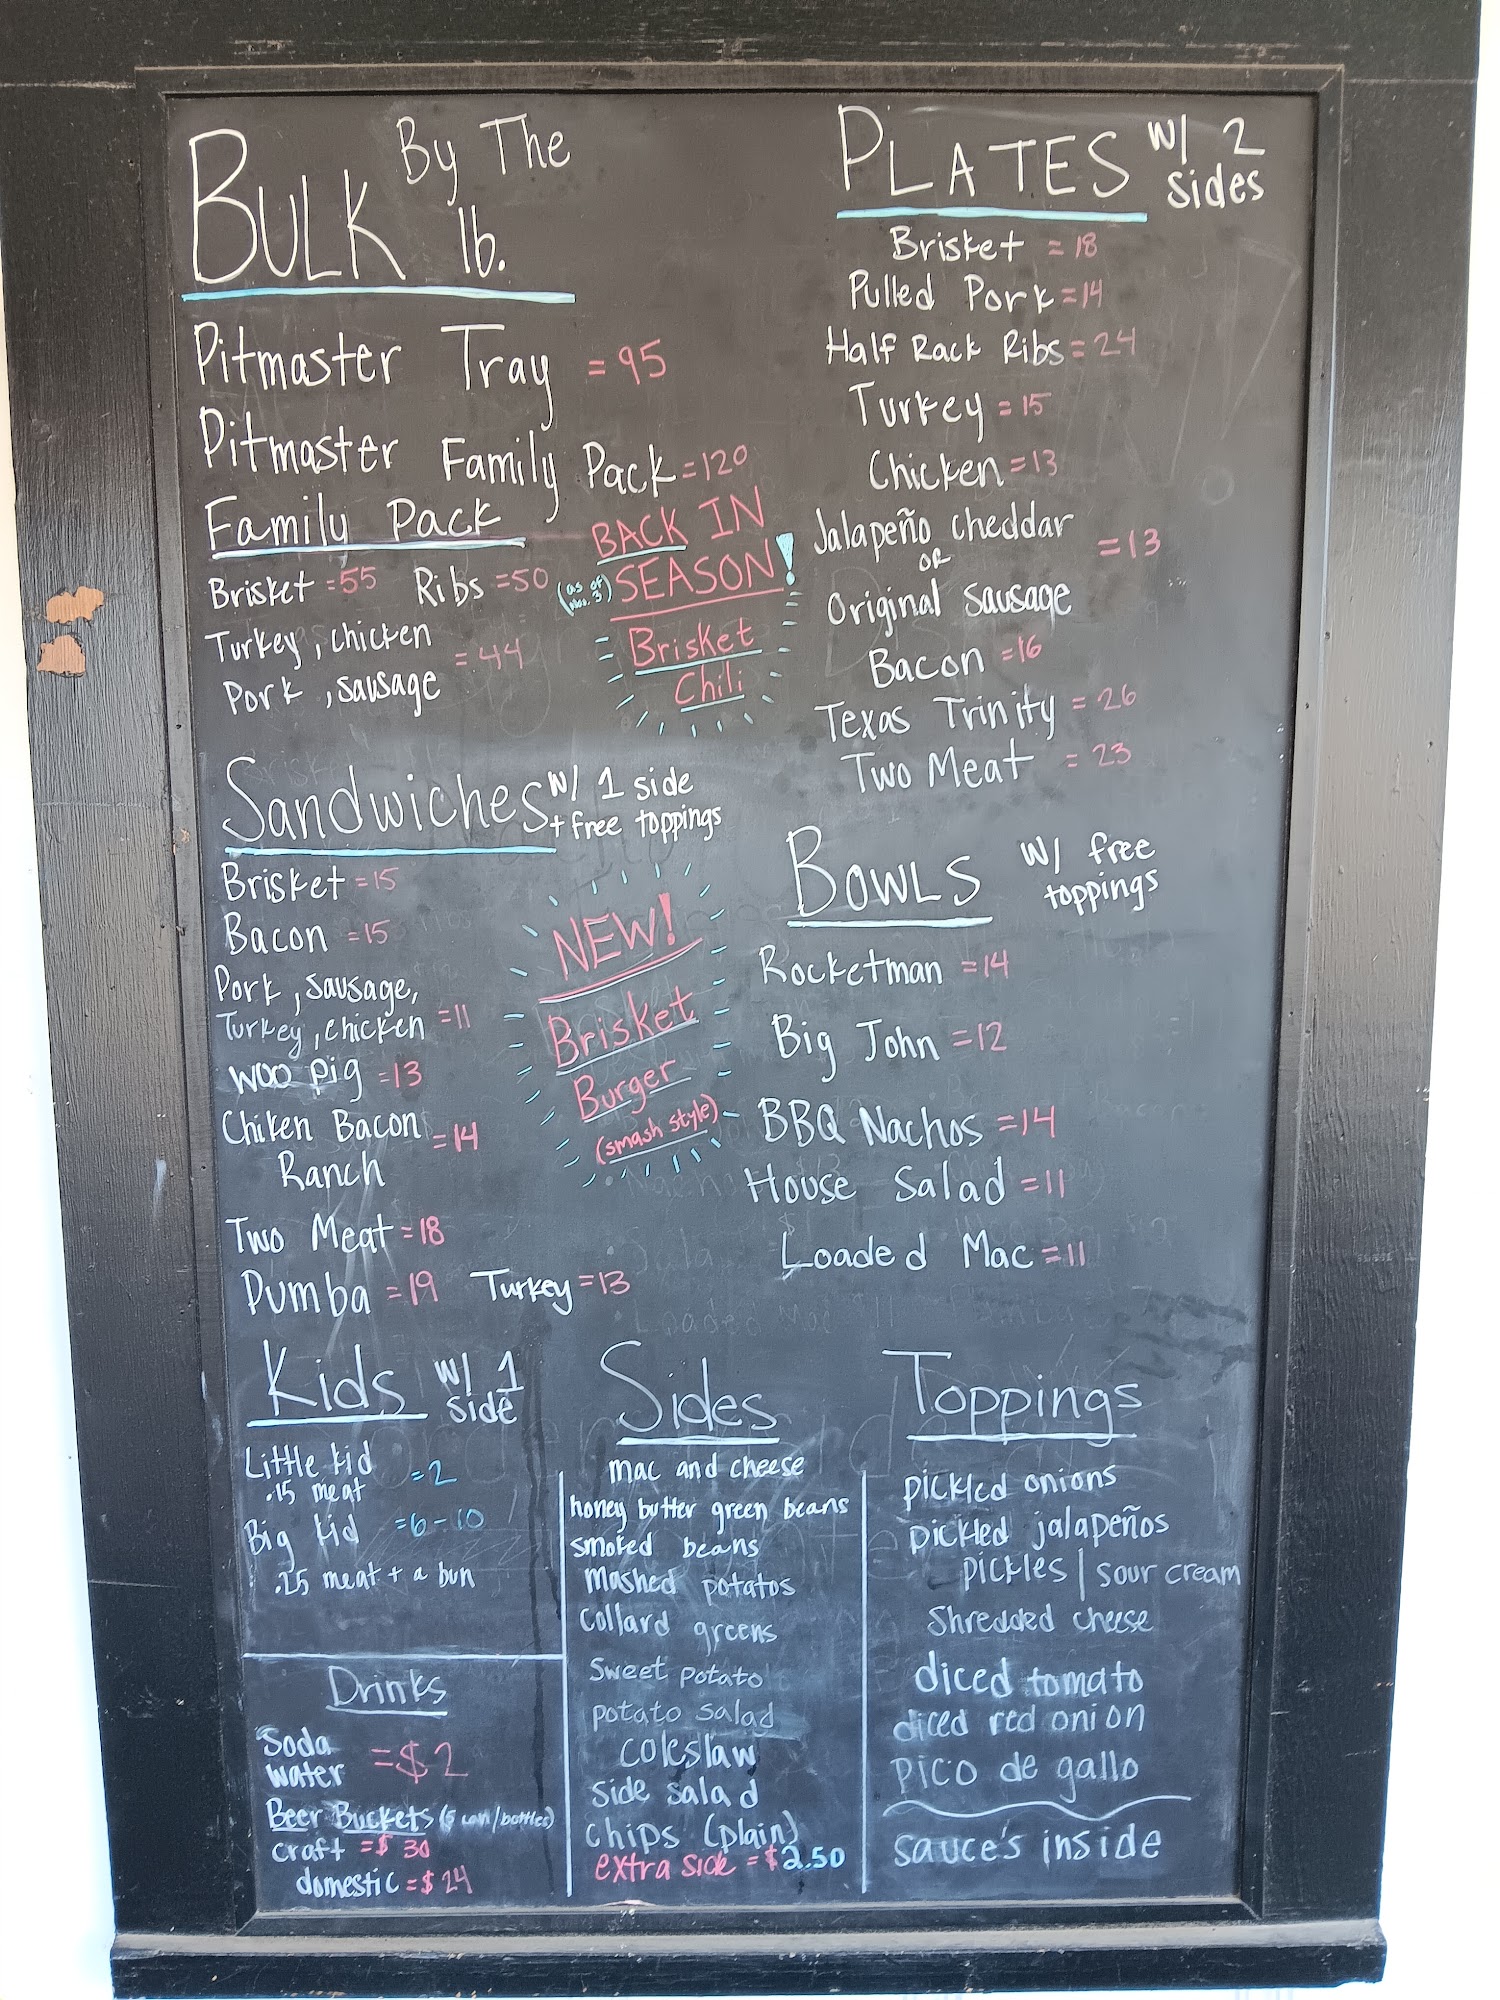 BULK By The lb.
Pitmaster Tray = 95
Pitmaster Family Pack = 120
Family Pack
Brisket = 55 Ribs = 50
Turkey, chicken
Pork, sausage = 44
BACK IN
SEASON!
(as of Nov. 3)
Brisket
Chili
Sandwiches w/ 1 side
+ free toppings
Brisket = 15
Bacon = 15
Pork, sausage,
Turkey, chicken = 11
WOO Pig = 13
Chiken Bacon = 14
Ranch
Two Meat = 18
Pumba = 19 Turkey = 13
NEW!
Brisket
Burger
(smash style)
PLATES w/ 2
sides
Brisket = 18
Pulled Pork = 14
Half Rack Ribs = 24
Turkey = 15
Chicken = 13
Jalapeño cheddar
OR = 13
Original Sausage
Bacon = 16
Texas Trinity = 26
Two Meat = 23
BOWLS w/ free
toppings
Rocketman = 14
Big John = 12
BBQ Nachos = 14
House Salad = 11
Loaded Mac = 11
Kids w/ 1
side
Little kid = 2
.15 meat
Big kid = 6 - 10
.25 meat + a bun
Drinks
Soda
water = $2
Beer Buckets (5 can/bottles)
craft = $30
domestic = $24
Sides
mac and cheese
honey butter green beans
smoked beans
mashed potatos
collard greens
sweet potato
potato salad
coleslaw
side salad
chips (plain)
extra side = $2.50
Toppings
pickled onions
pickled jalapeños
pickles | sour cream
shredded cheese
diced tomato
diced red onion
pico de gallo
sauce's inside